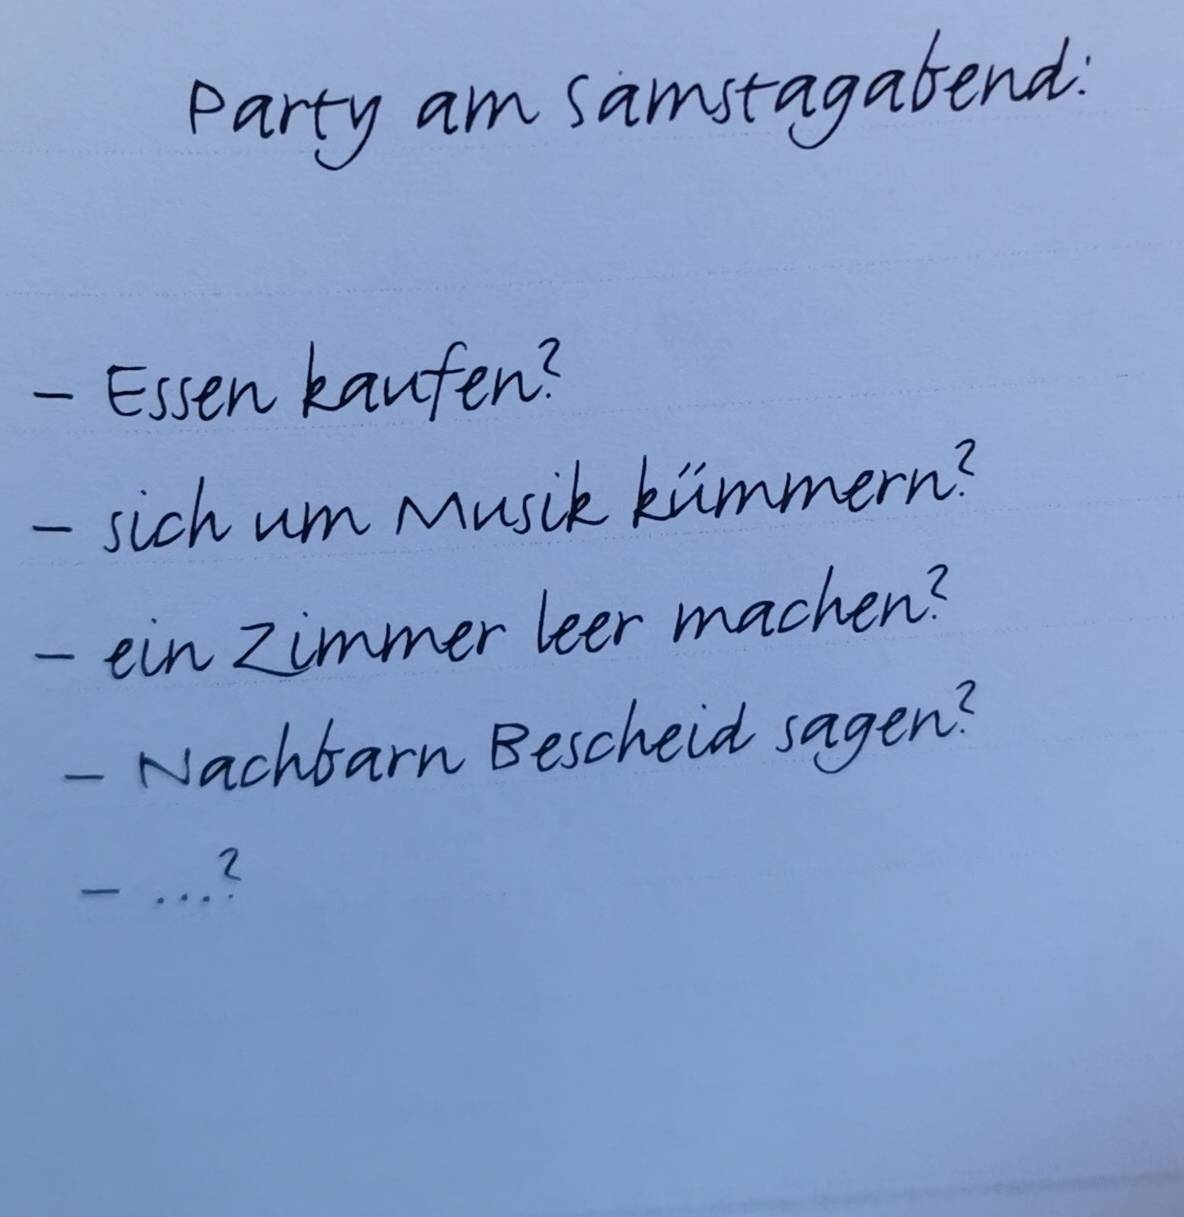 Party am Samstagabend:
- Essen kaufen?
- sich um Musik kümmern?
- ein Zimmer leer machen?
- Nachbarn Bescheid sagen?
- ...?